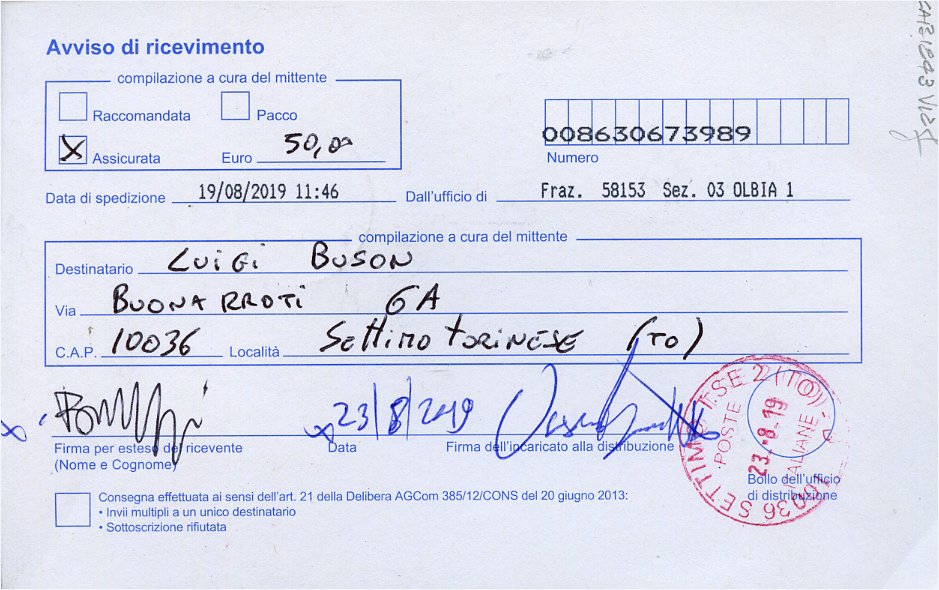 Avviso di ricevimento
compilazione a cura del mittente
Raccomandata Pacco
X Assicurata Euro 50,00
008630673989
Numero
Data di spedizione 19/08/2019 11:46 Dall'ufficio di Fraz. 58153 Sez. 03 OLBIA 1
compilazione a cura del mittente
Destinatario LUIGI BUSON
Via BUONARROTI 6A
C.A.P. 10036 Località SETTIMO TORINESE (TO)
x 23/8/2019
Firma per esteso del ricevente Data Firma dell'incaricato alla distribuzione
(Nome e Cognome)
10036 SETTIMO T.SE 2 (TO)
POSTE ITALIANE
23.-8.19
Bollo dell'ufficio
di distribuzione
Consegna effettuata ai sensi dell'art. 21 della Delibera AGCom 385/12/CONS del 20 giugno 2013:
• Invii multipli a un unico destinatario
• Sottoscrizione rifiutata